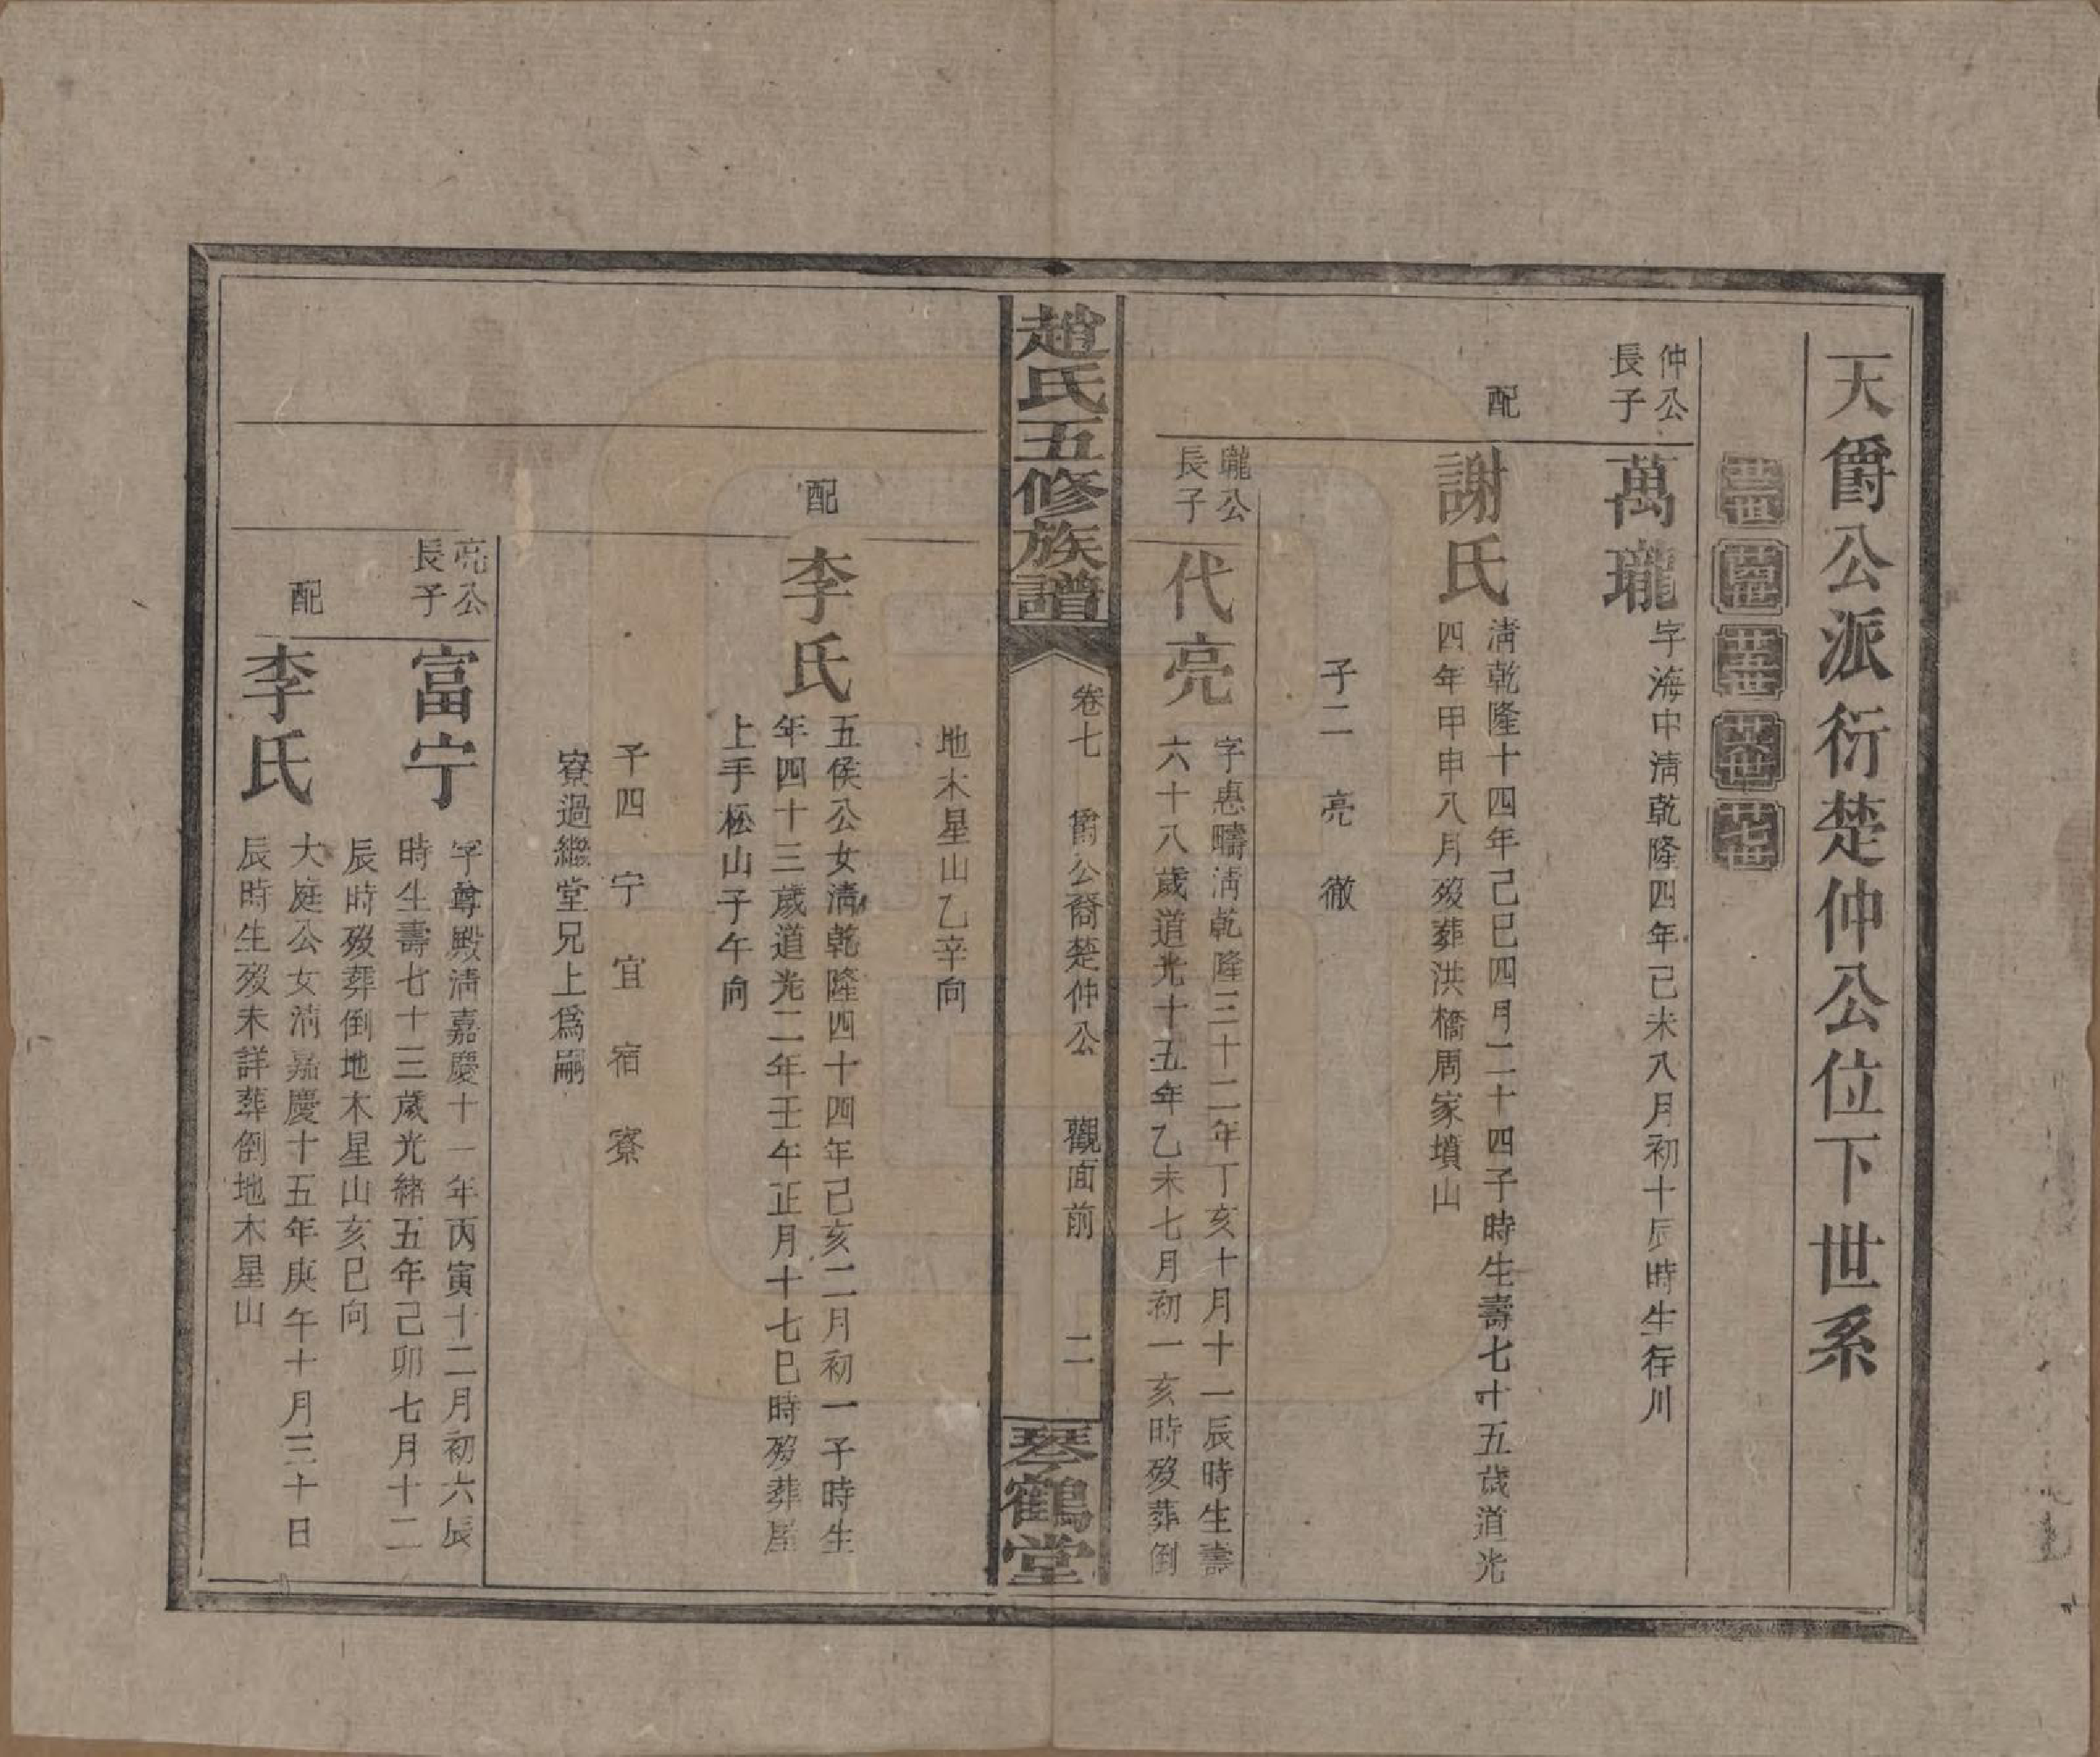 天爵公派衍楚仲公位下世系
廿三世 廿四世 廿五世 廿六世 廿七世
仲公
長子
萬瓏
字海中清乾隆四年己未八月初十辰時生行川
配
謝氏
清乾隆十四年己巳四月二十四子時生壽七十五歲道光
四年甲申八月歿葬洪橋周家墳山
子二 亮 徹
瓏公
長子
代亮
字惠疇清乾隆三十二年丁亥十月十一辰時生壽
六十八歲道光十五年乙未七月初一亥時歿葬倒
趙氏五修族譜
卷七 爵公裔楚仲公 觀面前 二
琴鶴堂
地木星山乙辛向
配
李氏
五侯公女清乾隆四十四年己亥二月初一子時生
年四十三歲道光二年壬午正月十七巳時歿葬屋
上手極山子午向
子四 宁 宜 宿 寮
寮過繼堂兄上為嗣
亮公
長子
富宁
字尊殿清嘉慶十一年丙寅十二月初六辰
時生壽七十三歲光緒五年己卯七月十二
辰時歿葬倒地木星山亥巳向
配
李氏
大庭公女清嘉慶十五年庚午十月三十日
辰時生歿未詳葬倒地木星山